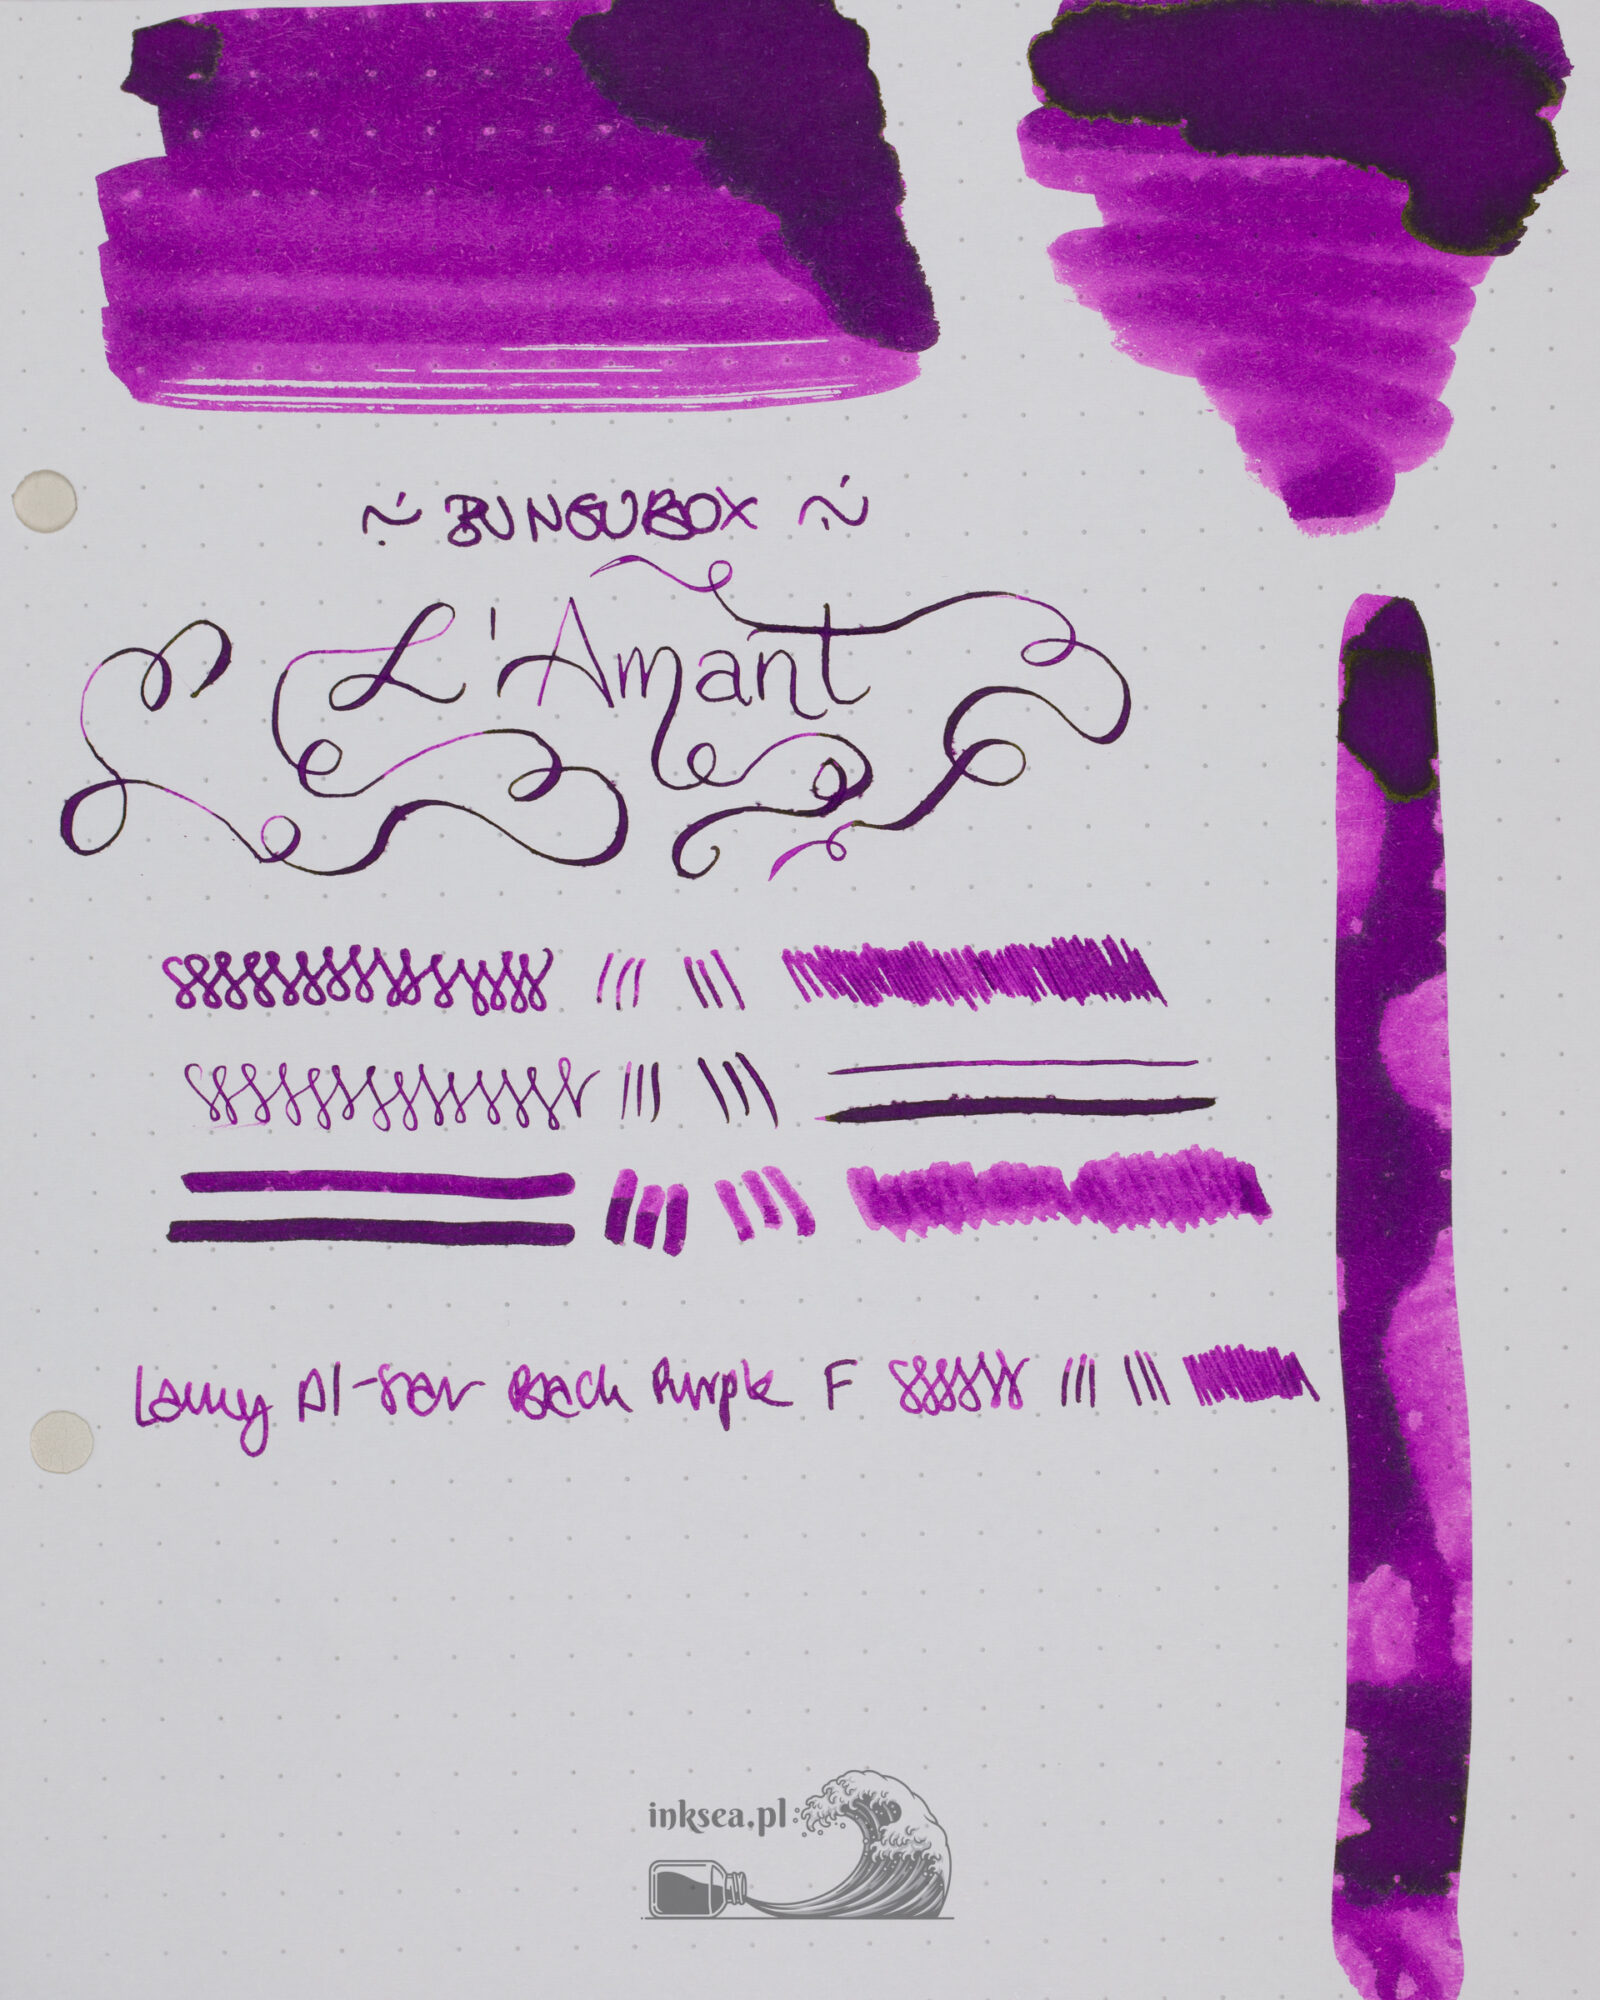 ~ BUNGUBOX ~
L'Amant
Lamy Al-Star Black Purple F
inksea.pl